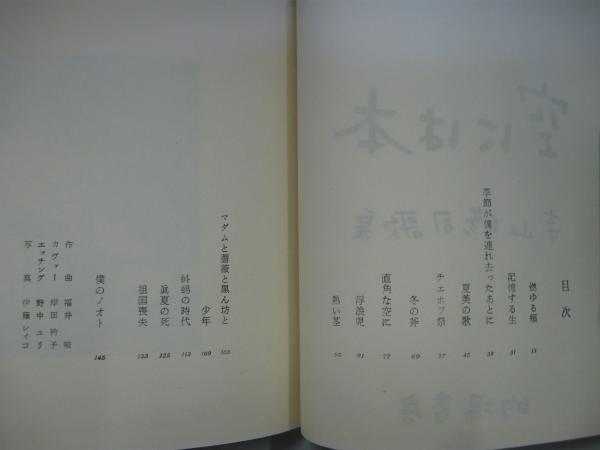 空には本
寺山修司歌集
的場書房
目次
燃ゆる頬 11
記憶する生 31
季節が僕を連れ去ったあとに 39
夏美の歌 45
チエホフ祭 57
冬の斧 69
直角な空に 77
浮浪児 91
熱い茎 95
マダムと薔薇と黒ん坊と 103
少年 109
蝌蚪の時代 113
眞夏の死 125
祖国喪失 133
僕のノオト 145
作曲 福井
カヴァー 岸田衿子
エッチング 野中ユリ
写真 伊藤レイコ